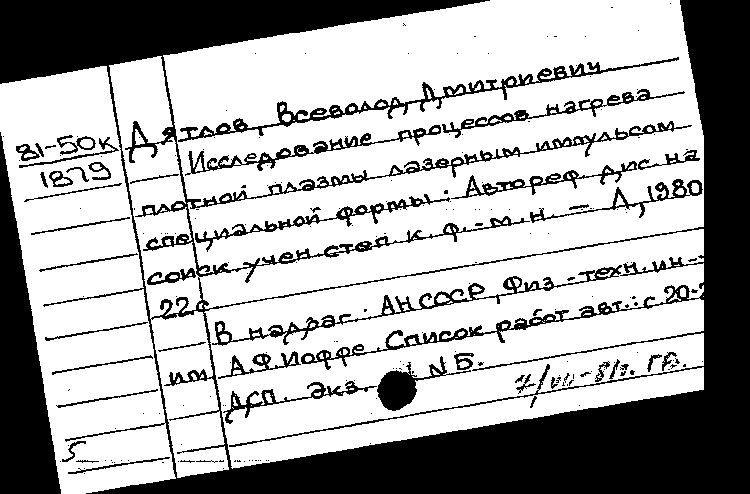 81-50к
1879
Дятлов, Всеволод Дмитриевич
Исследование процессов нагрева
плотной плазмы лазерным импульсом
специальной формы: Автореф. дис. на
соиск. учен. степ. к. ф.-м. н. – Л, 1980
22с
В надзаг.: АН СССР, Физ.-техн. ин-
им А.Ф.Иоффе. Список работ авт.: с 20-2
ДСП. Экз. N 5.
7/VII-81г. ГВ.
5